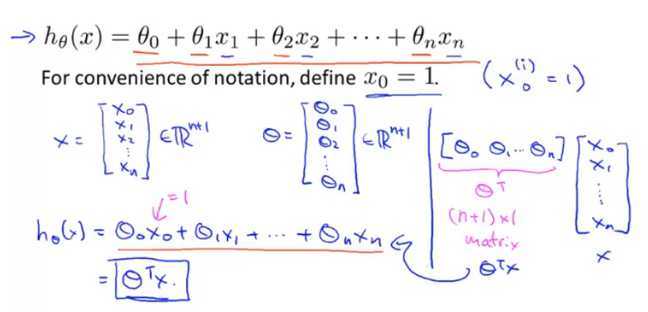 → hθ(x) = θ₀ + θ₁x₁ + θ₂x₂ + ··· + θₙxₙ
For convenience of notation, define x₀ = 1. (x₀⁽ⁱ⁾ = 1)
x = [x₀ x₁ x₂ ⋮ xₙ] ∈ ℝⁿ⁺¹ θ = [θ₀ θ₁ θ₂ ⋮ θₙ] ∈ ℝⁿ⁺¹
[θ₀ θ₁ ··· θₙ] [x₀ x₁ ⋮ xₙ]
θᵀ
(n+1) x 1
matrix
x
θᵀx
= 1
hθ(x) = θ₀x₀ + θ₁x₁ + ··· + θₙxₙ
= θᵀx.